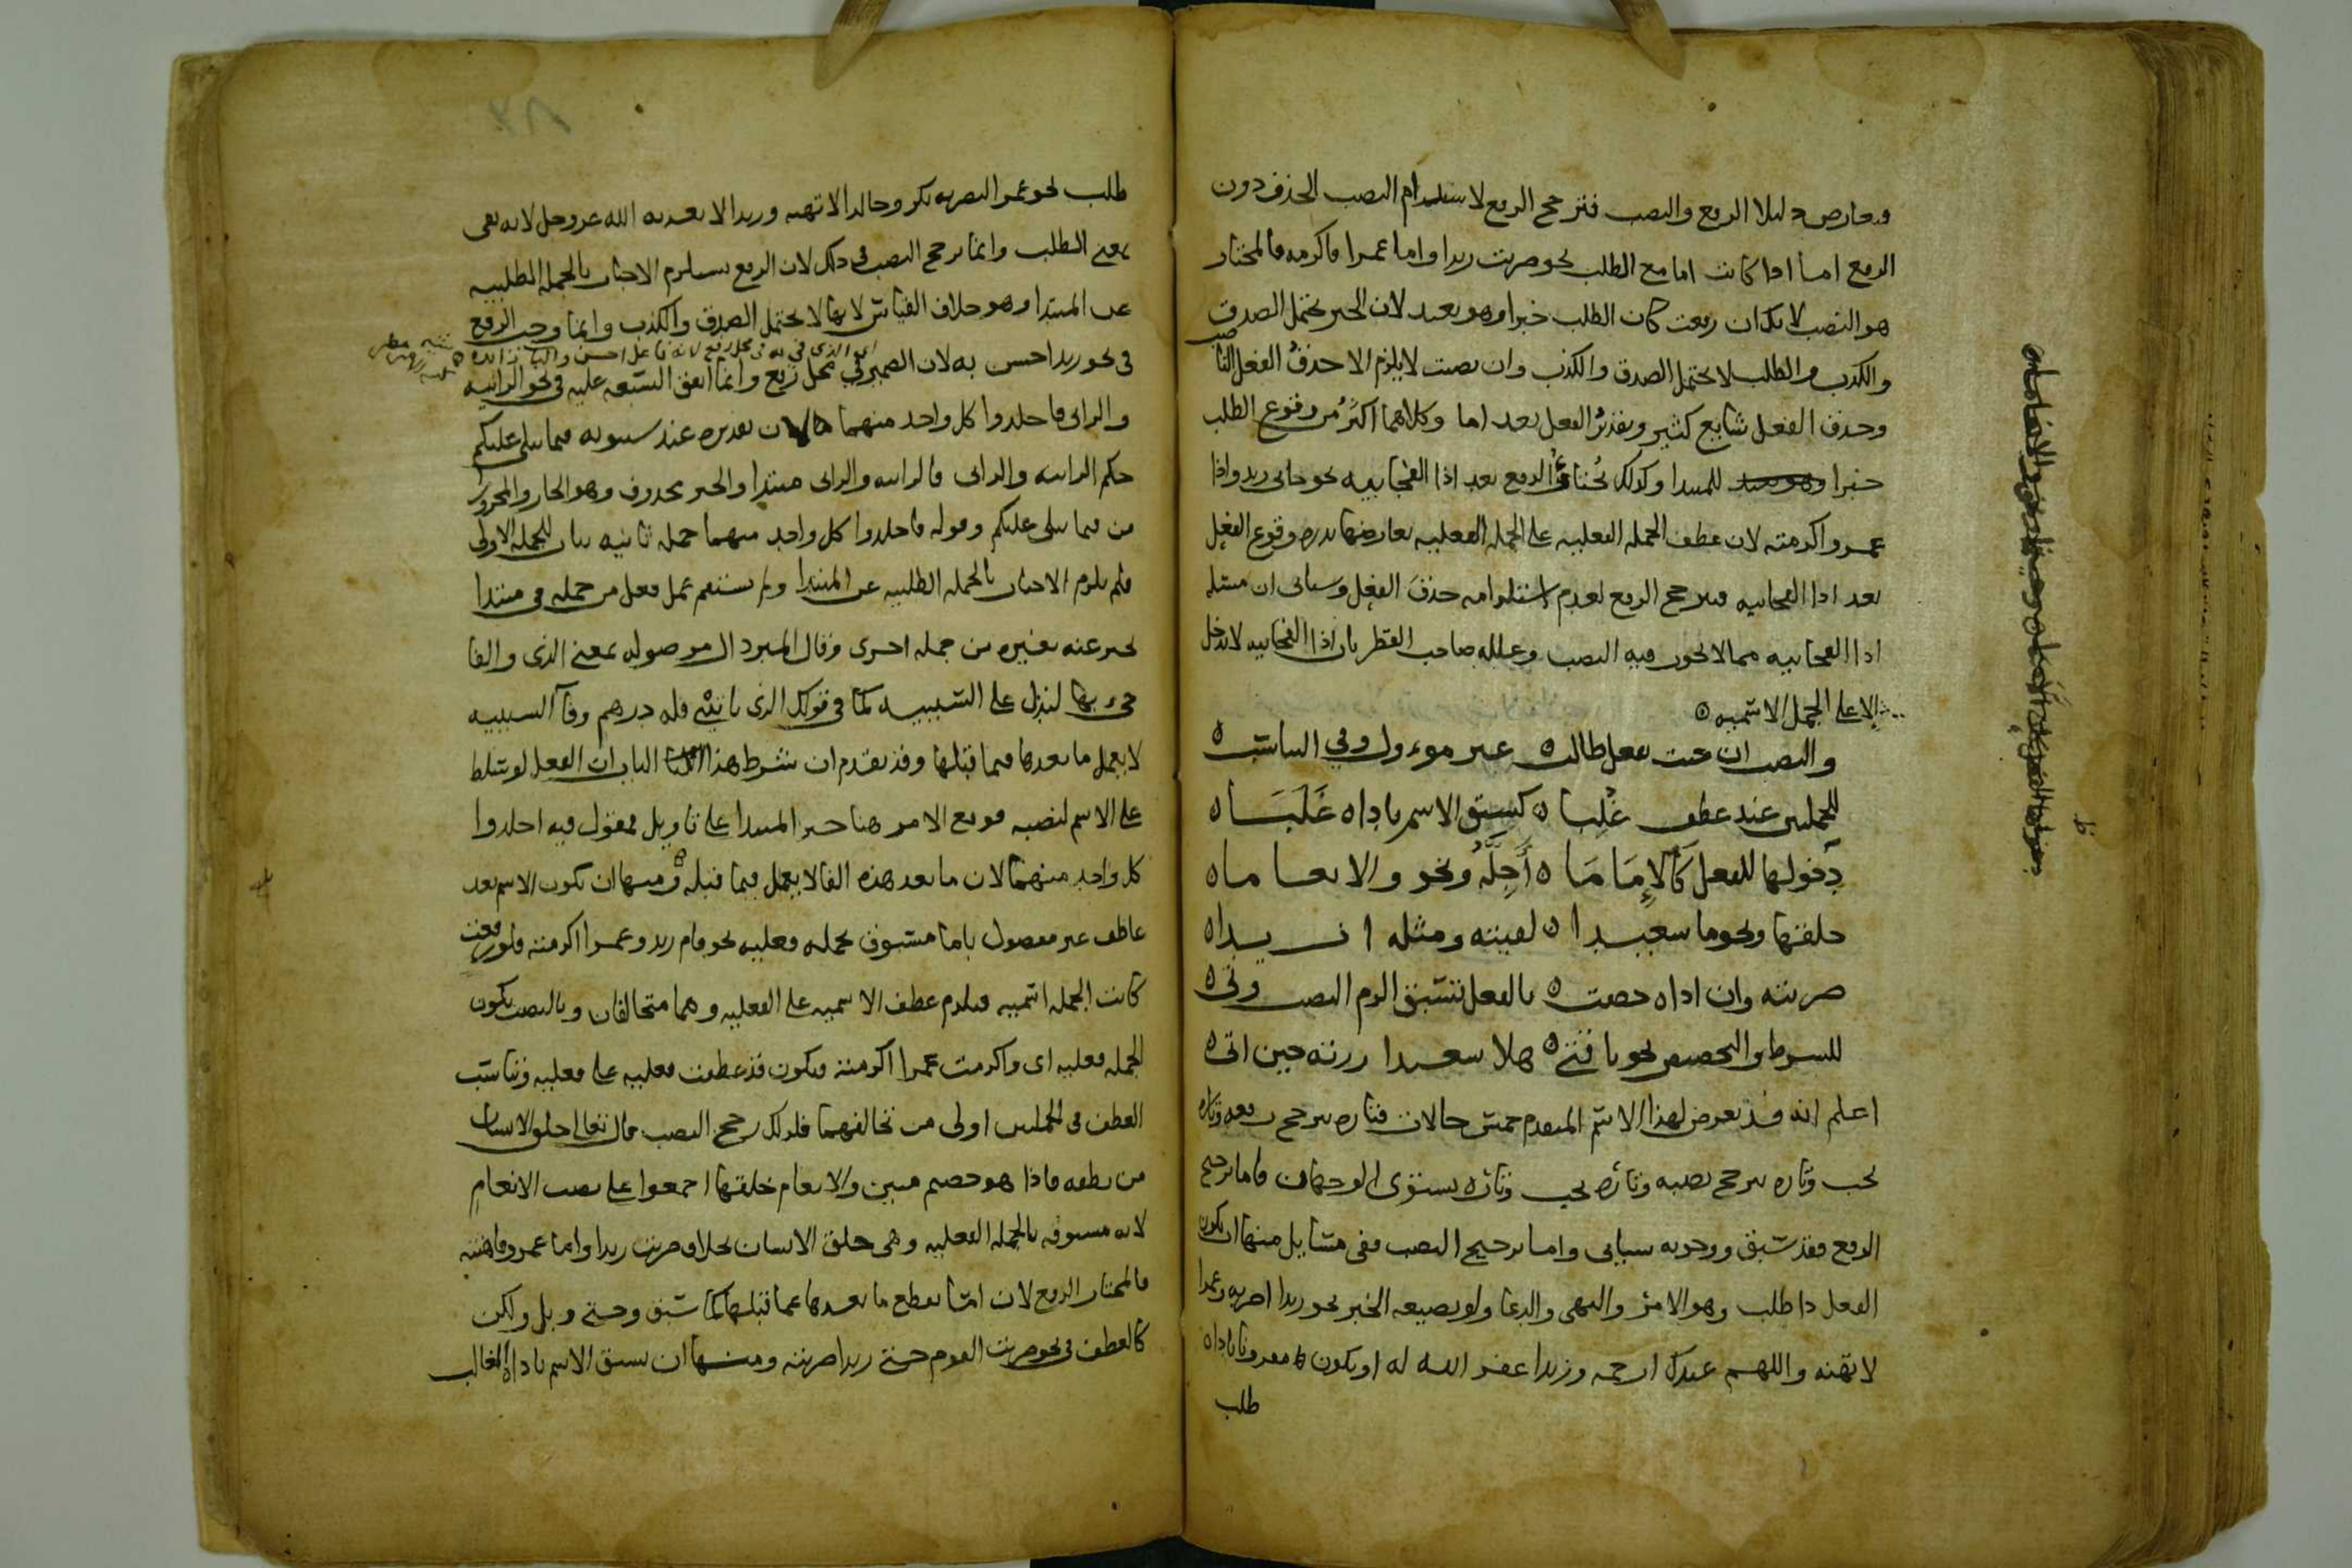 ويعارض دليلا الرفع والنصب فترجح الرفع لاستلزام النصب الحذف دون
الرفع اما اذا كانت اما مع الطلب نحو ضربت زيدا واما عمرا فاكرمه فالمختار
هو النصب لانك ان رفعت كان الطلب خبرا وهو بعيد لان الخبر يحتمل الصدق
والكذب والطلب لا يحتمل الصدق والكذب وان نصبت لا يلزم الا حذف الفعل
وحذف الفعل شايع كثير وتقدير الفعل بعد اما وكلاهما اكثر من وقوع الطلب
خبرا للمبتدا وكذلك يختار الرفع بعد اذا الفجاييه نحو جاني زيد واذا
عمرو اكرمته لان عطف الجمله الفعليه على الجمله الفعليه تعارضها ندره وقوع الفعل
بعد اذا الفجاييه فيرجح الرفع لعدم استلزامه حذف الفعل وسياتي ان مسئله
اذا الفجاييه مما لا يجوز فيه النصب وعلله صاحب القطر بان اذا الفجاييه لا تدخل
الا على الجمل الاسميه ه
والنصب ان حت بفعل طالب ه غير موءول وفي التناسب ه
للجملتين عند عطف غلبا ه كسبق الاسم باداه غلبا ه
دخولها للفعل كالاماما ه اجله ونحو والانعاما ه
خلقها ونحو ما سعيدا ه لقيته ومثله ا زيدا ه
ضربته وان اداه خصت ه بالفعل تسبق الزم النصب وفى ه
للشرط والتحضيض نحو يا فتى ه هلا سعيدا زرته حين اتى ه
اعلم انه قد تعرض لهذا الاسم المتقدم خمس حالات فتاره يترجح رفعه وتاره
يجب وتاره يترجح نصبه وتاره يجب وتاره يستوى الوجهان فاما ترجيح
الرفع فقد سبق ووجوبه سياتي واما ترجيح النصب ففي مسايل منها ان يكون
الفعل ذا طلب وهو الامر والنهي والدعا ولو بصيغه الخبر نحو زيدا اضربه وعمرا
لا تهنه واللهم عبدك ارحمه وزيدا غفر الله له او يكون مقرونا باداه
طلب
طلب نحو عمرا لتضربه بكر وخالدا لا تهنه وزيدا لا يعذبه الله عز وجل لانه نفى
بمعنى الطلب وانما ترجح النصب في ذلك لان الرفع يستلزم الاخبار بالجمله الطلبيه
عن المبتدا وهو خلاف القياس لانها لا تحتمل الصدق والكذب وانما وجب الرفع
في نحو زيد احسن به لان الضمير في محل رفع وانما اتفق السبعه عليه في نحو الزانيه
والزاني فاجلدوا كل واحد منهما لان تقديره عند سيبويه مما يتلى عليكم
حكم الزانيه والزاني فالزانيه والزاني مبتدا والخبر محذوف وهو الجار والمجرور
من مما يتلى عليكم وقوله فاجلدوا كل واحد منهما جمله ثانيه بيان للجمله الاولى
فلم يلزم الاخبار بالجمله الطلبيه عن المبتدا ولم يستقم عمل فعل من جمله في مبتدا
مخبر عنه بغيره من جمله اخرى وقال المبرد ال موصوله بمعنى الذى والفا
جيء بها لتدل على السببيه كما في قولك الذى ياتيني فله درهم وفا السببيه
لا يعمل ما بعدها فيما قبلها وقد تقدم ان شرط هذا الباب ان الفعل لو تسلط
على الاسم لنصبه فوقع الامر هنا خبر المبتدا على تاويل مقول فيه اجلدوا
كل واحد منهما لان ما بعد هذه الفا لا يعمل فيما قبله ومنها ان يكون الاسم بعد
عاطف غير مفصول باما مسبوق بجمله فعليه نحو قام زيد وعمرا اكرمته فلو رفعت
كانت الجمله اسميه فيلزم عطف الاسميه على الفعليه وهما متخالفان وبالنصب تكون
الجمله فعليه اى واكرمت عمرا اكرمته فيكون قد عطفت فعليه على فعليه وتناسب
العطف في الجملتين اولى من تخالفهما فلذلك رجح النصب قال تعالى خلق الانسان
من نطفه فاذا هو خصيم مبين والانعام خلقها اجمعوا على نصب الانعام
لانه مسبوقه بالجمله الفعليه وهي خلق الانسان بخلاف ضربت زيدا واما عمرو فاهنته
فالمختار الرفع لان اما تقطع ما بعدها عما قبلها كما سبق وحتى وبل ولكن
كالعطف في نحو ضربت القوم حتى زيدا ضربته ومنها ان يسبق الاسم باداه الغالب